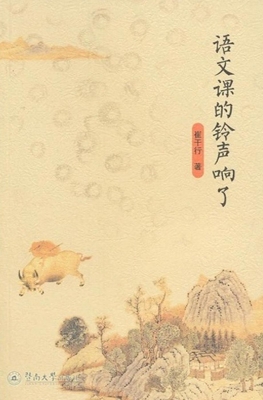 语文课的铃声响了
崔干行 著
暨南大学出版社